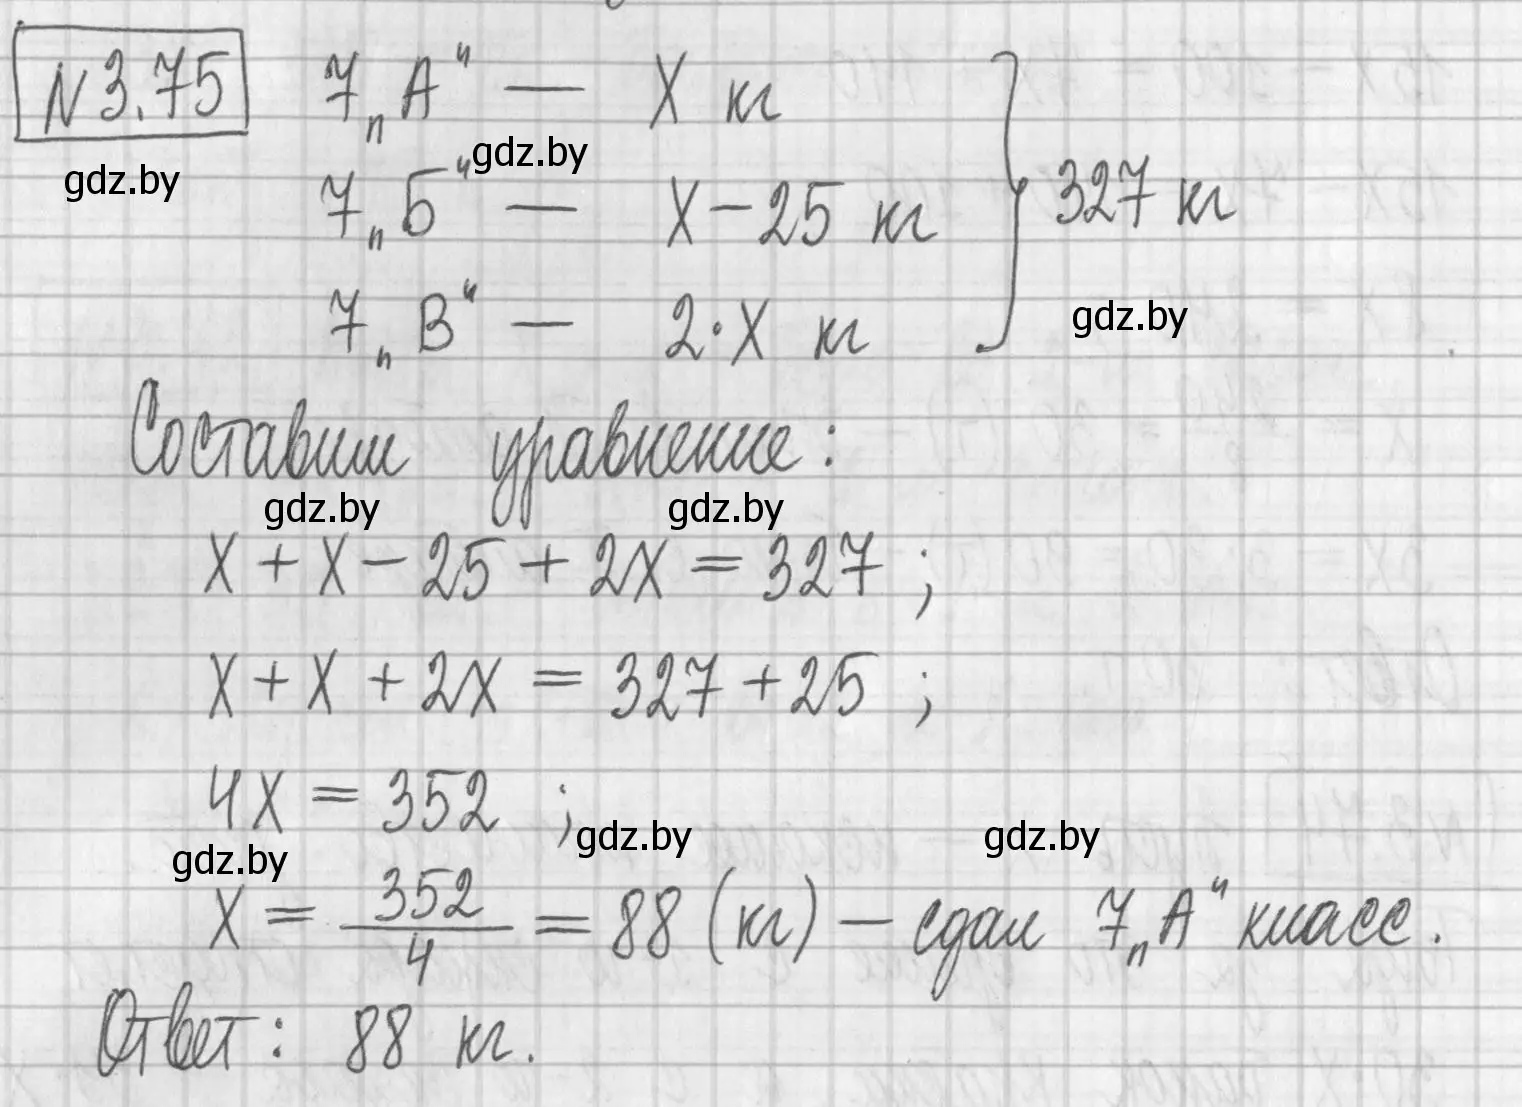 N 3.75 7 „А“ — x кг
gdz.by gdz.by
7 „Б“ — x – 25 кг 327 кг
7 „В“ — 2·x кг gdz.by
Составим уравнение:
gdz.by gdz.by
x + x – 25 + 2x = 327 ;
x + x + 2x = 327 + 25 ;
4x = 352 ;
gdz.by gdz.by gdz.by
x = 352/4 = 88 (кг) – сдал 7 „А“ класс.
Ответ: 88 кг.